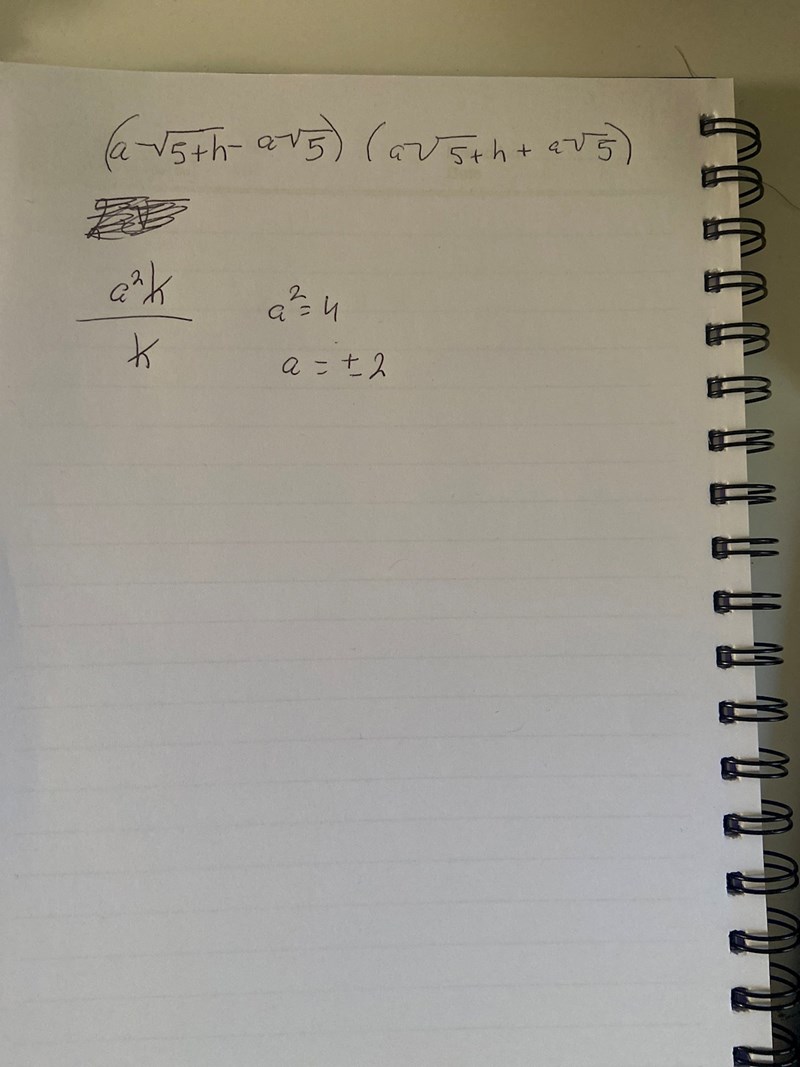 (a√5+h - a√5) (a√5+h + a√5)
a²h
h
a² = 4
a = ± 2